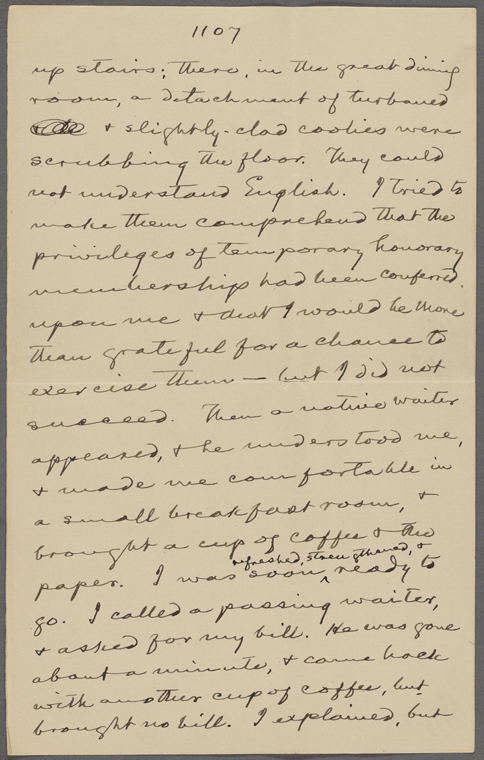 1107
up stairs; there, in the great dining
room, a detachment of turbaned
& slightly-clad coolies were
scrubbing the floor. They could
not understand English. I tried to
make them comprehend that the
privileges of temporary honorary
membership had been conferred
upon me & that I would be more
than grateful for a chance to
exercise them — but I did not
succeed. Then a native waiter
appeared, & he understood me,
& made me comfortable in
a small breakfast room, &
brought a cup of coffee & the
refreshed, strengthened, &
paper. I was soon ‸ ready to
go. I called a passing waiter,
& asked for my bill. He was gone
about a minute, & came back
with another cup of coffee, but
brought no bill. I explained, but